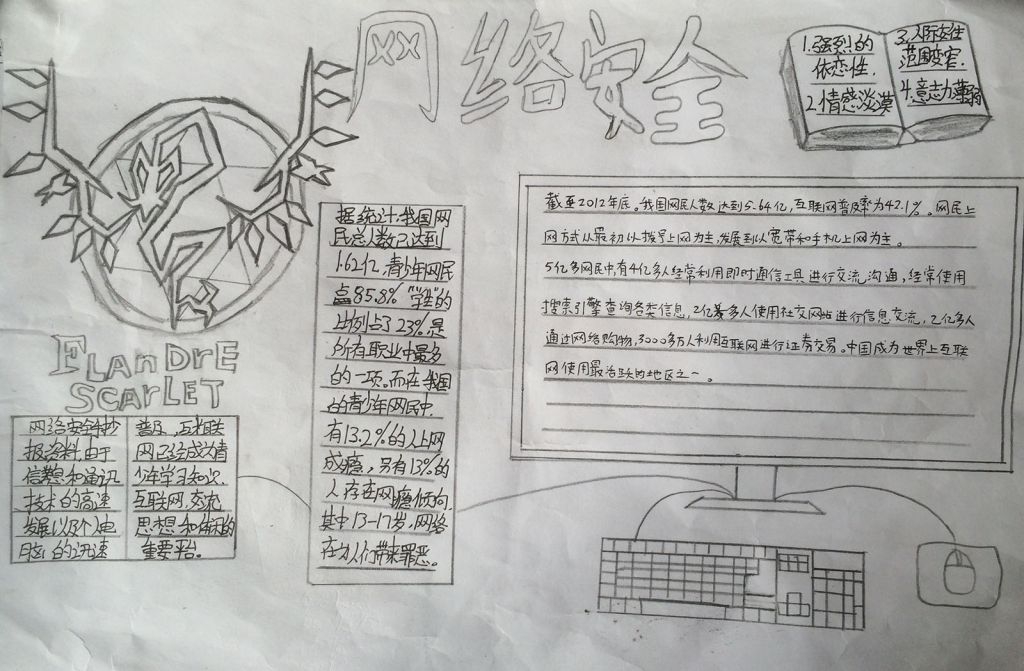 网络安全
1.强烈的
依恋性.
2.情感淡漠
3.人际交往
范围变窄.
4.意志力薄弱
截至2012年底。我国网民人数达到5.64亿,互联网普及率为42.1%。网民上
网方式从最初以拨号上网为主,发展到以宽带和手机上网为主。
5亿多网民中,有4亿多人经常利用即时通信工具进行交流,沟通,经常使用
搜索引擎查询各类信息,2亿多人使用社交网站进行信息交流,2亿多人
通过网络购物,3000多万人利用互联网进行证券交易。中国成为世界上互联
网使用最活跃的地区之一。
据统计,我国网
民总人数已达到
1.62亿,青少年网民
占85.8%"学生"的
比例占了23%是
所有职业中最多
的一项。而在我国
的青少年网民中,
有13.2%的人上网
成瘾,另有13%的
人存在网瘾倾向,
其中13-17岁,网络
在为人们带来罪恶。
FLANDRE
SCARLET
网络安全手抄
报资料.由于
信息和通讯
技术的高速
发展以及个人电
脑的迅速
普及,互联
网已经成为青
少年学习知识.
互联网,交流
思想和休闲的
重要平台。